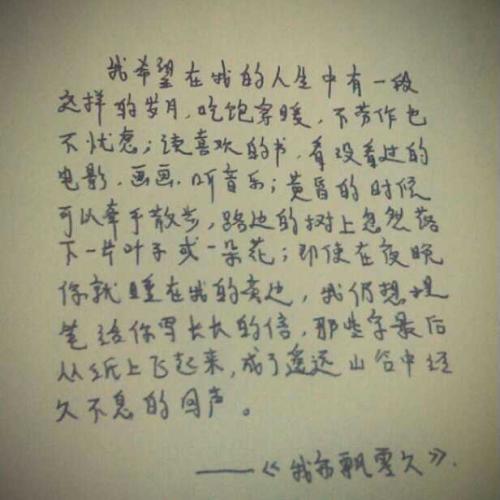 我希望在我的人生中有一段
这样的岁月，吃饱穿暖，不劳作也
不忧虑；读喜欢的书，看没看过的
电影，画画，听音乐；黄昏的时候
可以牵手散步，路边的树上忽然落
下一片叶子或一朵花；即使在夜晚
你就睡在我的旁边，我仍想提
笔给你写长长的信，那些字最后
从纸上飞起来，成了遥远山谷中经
久不息的回声。
——《我亦飘零久》.